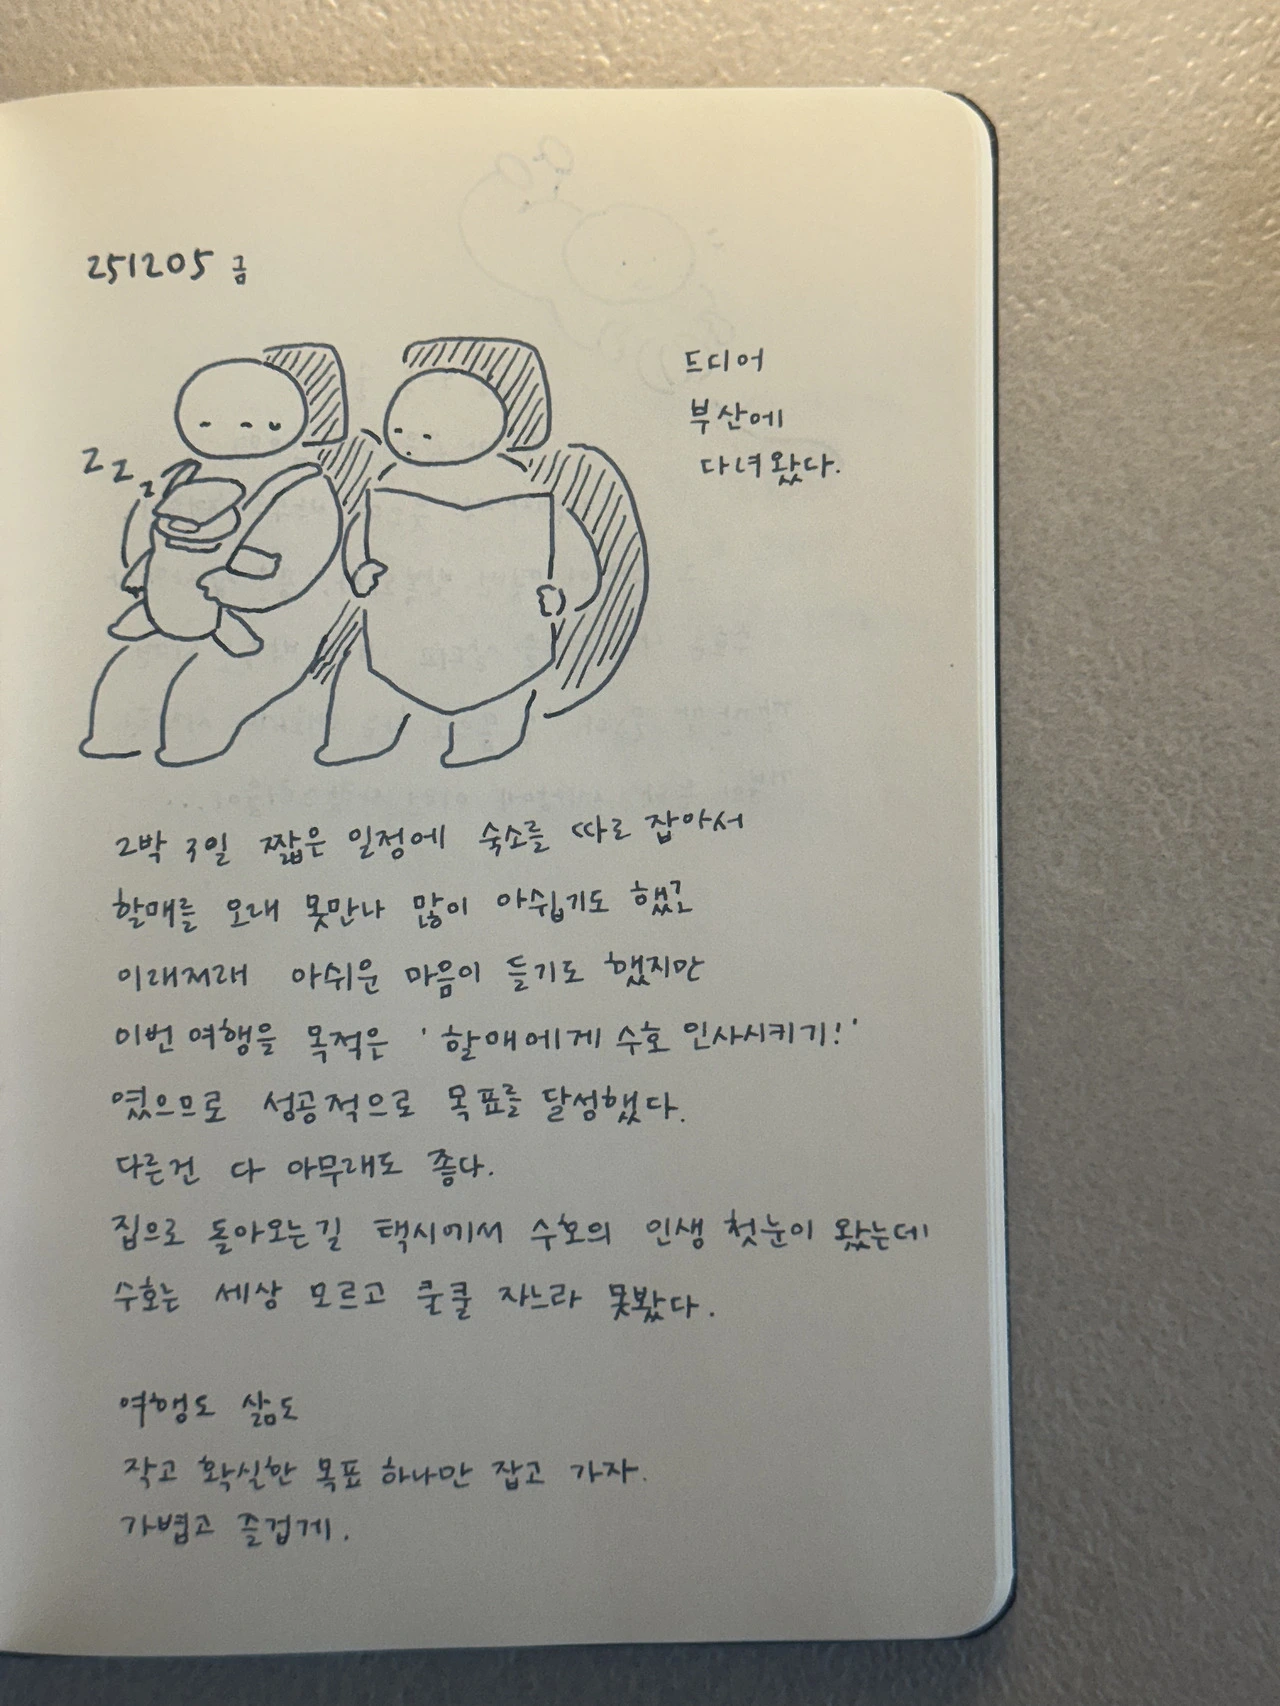 251205 금
드디어
부산에
다녀왔다.
zzz
2박 3일 짧은 일정에 숙소를 따로 잡아서
할매를 오래 못만나 많이 아쉽기도 했고
이래저래 아쉬운 마음이 들기도 했지만
이번 여행을 목적은 '할매에게 수호 인사시키기!'
였으므로 성공적으로 목표를 달성했다.
다른건 다 아무래도 좋다.
집으로 돌아오는길 택시에서 수호의 인생 첫눈이 왔는데
수호는 세상 모르고 쿨쿨 자느라 못봤다.
여행도 삶도
작고 확실한 목표 하나만 잡고 가자.
가볍고 즐겁게.